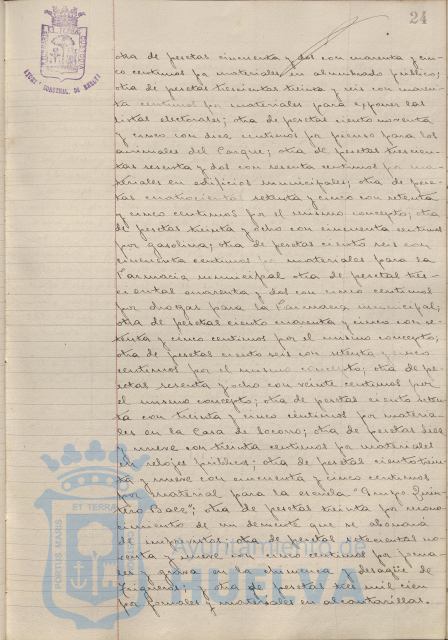 24
otra de pesetas cincuenta y dos con cuarenta y cin-
co centimos por materiales en alumbrado publico;
otra de pesetas trescientas treinta y seis con cuaren-
ta centimos por materiales para exponer las
listas electorales; otra de pesetas ciento noventa
y cinco con diez centimos por pienso para los
animales del Parque; otra de pesetas trescien-
tas sesenta y dos con sesenta centimos por ma-
teriales en edificios municipales; otra de pese-
tas cuatrocientas setenta y cinco con setenta
y cinco centimos por el mismo concepto; otra
de pesetas treinta y ocho con cincuenta centimos
por gasolina; otra de pesetas ciento seis con
cincuenta centimos por materiales para la
Farmacia municipal otra de pesetas tres-
cientas cuarenta y dos con cinco centimos
por drogas para la Farmacia municipal;
otra de pesetas ciento cuarenta y cinco con se-
tenta y cinco centimos por el mismo concepto;
otra de pesetas ciento seis con setenta y cinco
centimos por el mismo concepto; otra de pe-
setas sesenta y ocho con veinte centimos por
el mismo concepto; otra de pesetas ciento
con treinta y cinco centimos por materia-
les en la Casa de Socorro; otra de pesetas diez
y nueve con treinta centimos por materiales
en relojes publicos; otra de pesetas ciento trein-
ta y nueve con cincuenta y cinco centimos
por material para la escuela "Grupo Quin-
tero Baez"; otra de pesetas treinta por
de un demente que se abonará
de imprevistos; otra de pesetas setecientas no-
venta y nueve con cinco centimos por jorna-
les y grava en la chimenea y desagüe de
Trigueros; y otra de pesetas tres mil cien
por jornales y materiales en alcantarillas.
PORTUS MARIS
ET TERRAE
Ayuntamiento de
HUELVA